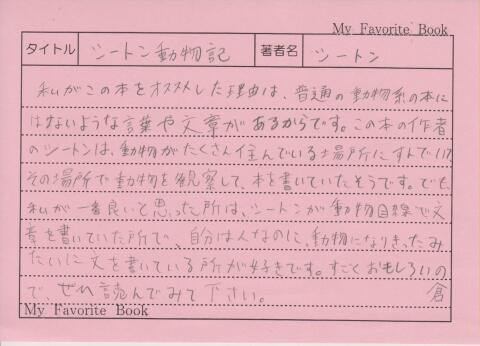 My Favorite Book
タイトル シートン動物記 著者名 シートン
私がこの本をオススメした理由は、普通の動物系の本に
はないような言葉や文章があるからです。この本の作者
のシートンは、動物がたくさん住んでいる場所にすんでいて
その場所で動物を観察して、本を書いていたそうです。でも、
私が一番良いと思った所は、シートンが動物目線で文
章を書いていた所で、自分は人なのに、動物になりきったみ
たいに文を書いている所が好きです。すごくおもしろいの
で、ぜひ読んでみて下さい。 倉
My Favorite Book